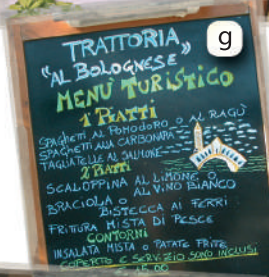 g
TRATTORIA
"AL BOLOGNESE"
MENÙ TURISTICO
1ⁱ PIATTI
SPAGHETTI AL POMODORO O AL RAGÙ
SPAGHETTI ALLA CARBONARA
TAGLIATELLE AL SALMONE
2ⁱ PIATTI
SCALOPPINA AL LIMONE O
AL VINO BIANCO
BRACIOLA O
BISTECCA AI FERRI
FRITURA MISTA DI PESCE
CONTORNI
INSALATA MISTA O PATATE FRITE
COPERTO E SERVIZIO SONO INCLUSI